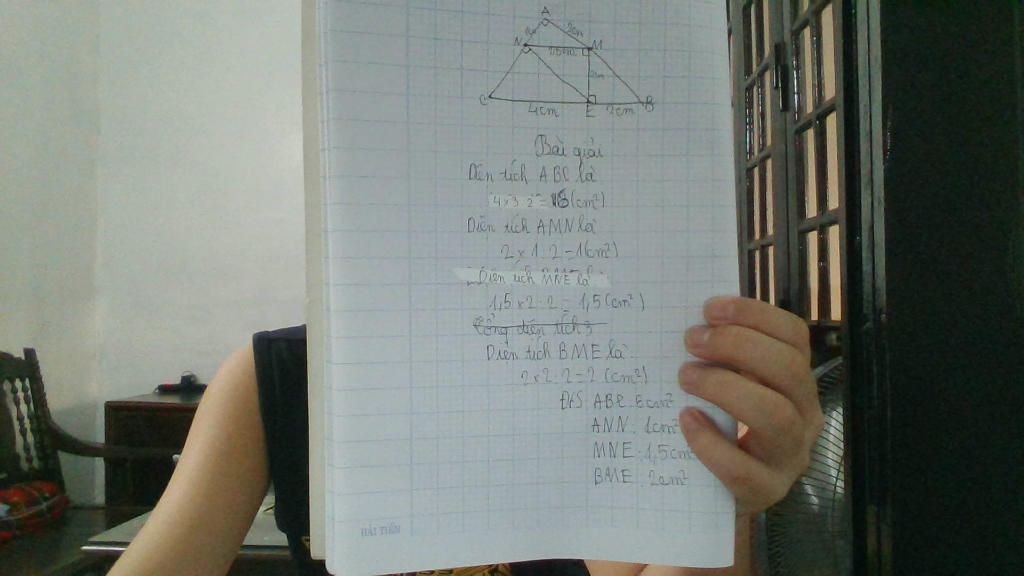 A
2cm
N
M
C
4cm
E
2cm
B
Bài giải
Diện tích ABC là
4 x 3 : 2 = (cm²)
Diện tích AMN là
2 x 1 : 2 = 1(cm²)
Diện tích MNE là
1,5 x 2 : 2 = 1,5 (cm²)
Tổng diện tích 3
Diện tích BME là
2 x 2 : 2 = 2 (cm²)
ĐS: ABC: 6cm²
ANN: 1cm²
MNE: 1,5cm²
BME: 2cm²
HẢI TIẾN